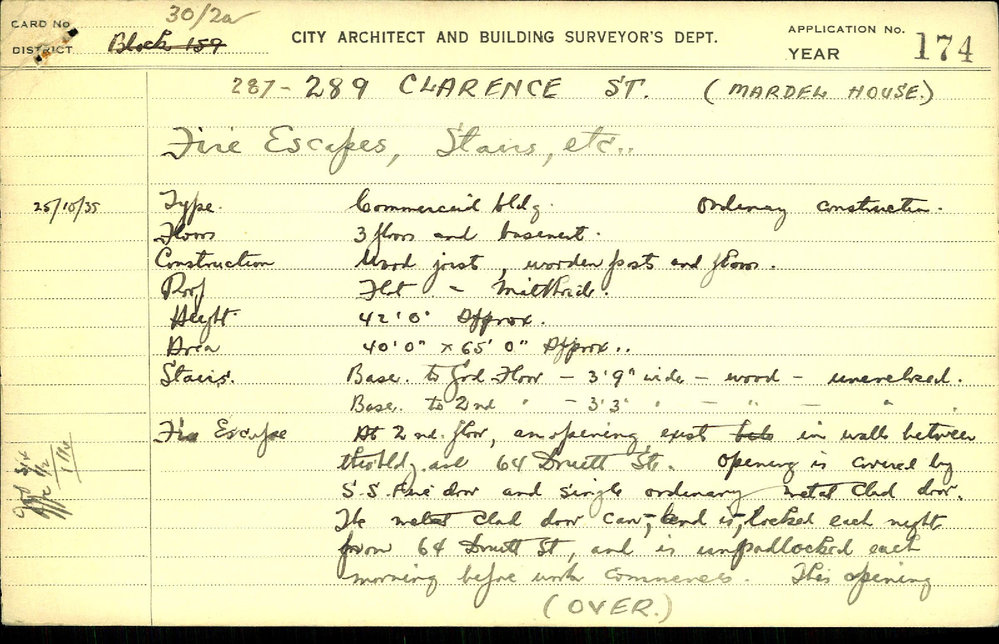 CARD No 30/2a
DISTRICT Block 159
CITY ARCHITECT AND BUILDING SURVEYOR'S DEPT.
APPLICATION No.
YEAR
174
287-289 CLARENCE ST. (MARDEL HOUSE.)
Fire Escapes, Stairs, etc..
25/10/35 Type. Commercial bldg. Ordinary construction.
Floors 3 floors and basement.
Construction Wood joist, wooden posts and floors.
Roof Flat - Malthoid.
Height 42'0" Approx.
Area 40'0" x 65'0" Approx..
Stairs. Base. to Grd Floor - 3'9" wide - wood - unenclosed.
Base. to 2nd " - 3'3" " - " - " .
Fire Escape At 2nd. floor, an opening exist in walls between
this bldg. and 64 Druitt St. Opening is covered by
S.S. Fire door and single ordinary metal clad door.
The metal clad door can, and is, locked each night
from 64 Druitt St, and is unpadlocked each
morning before work commences. This opening
(OVER.)